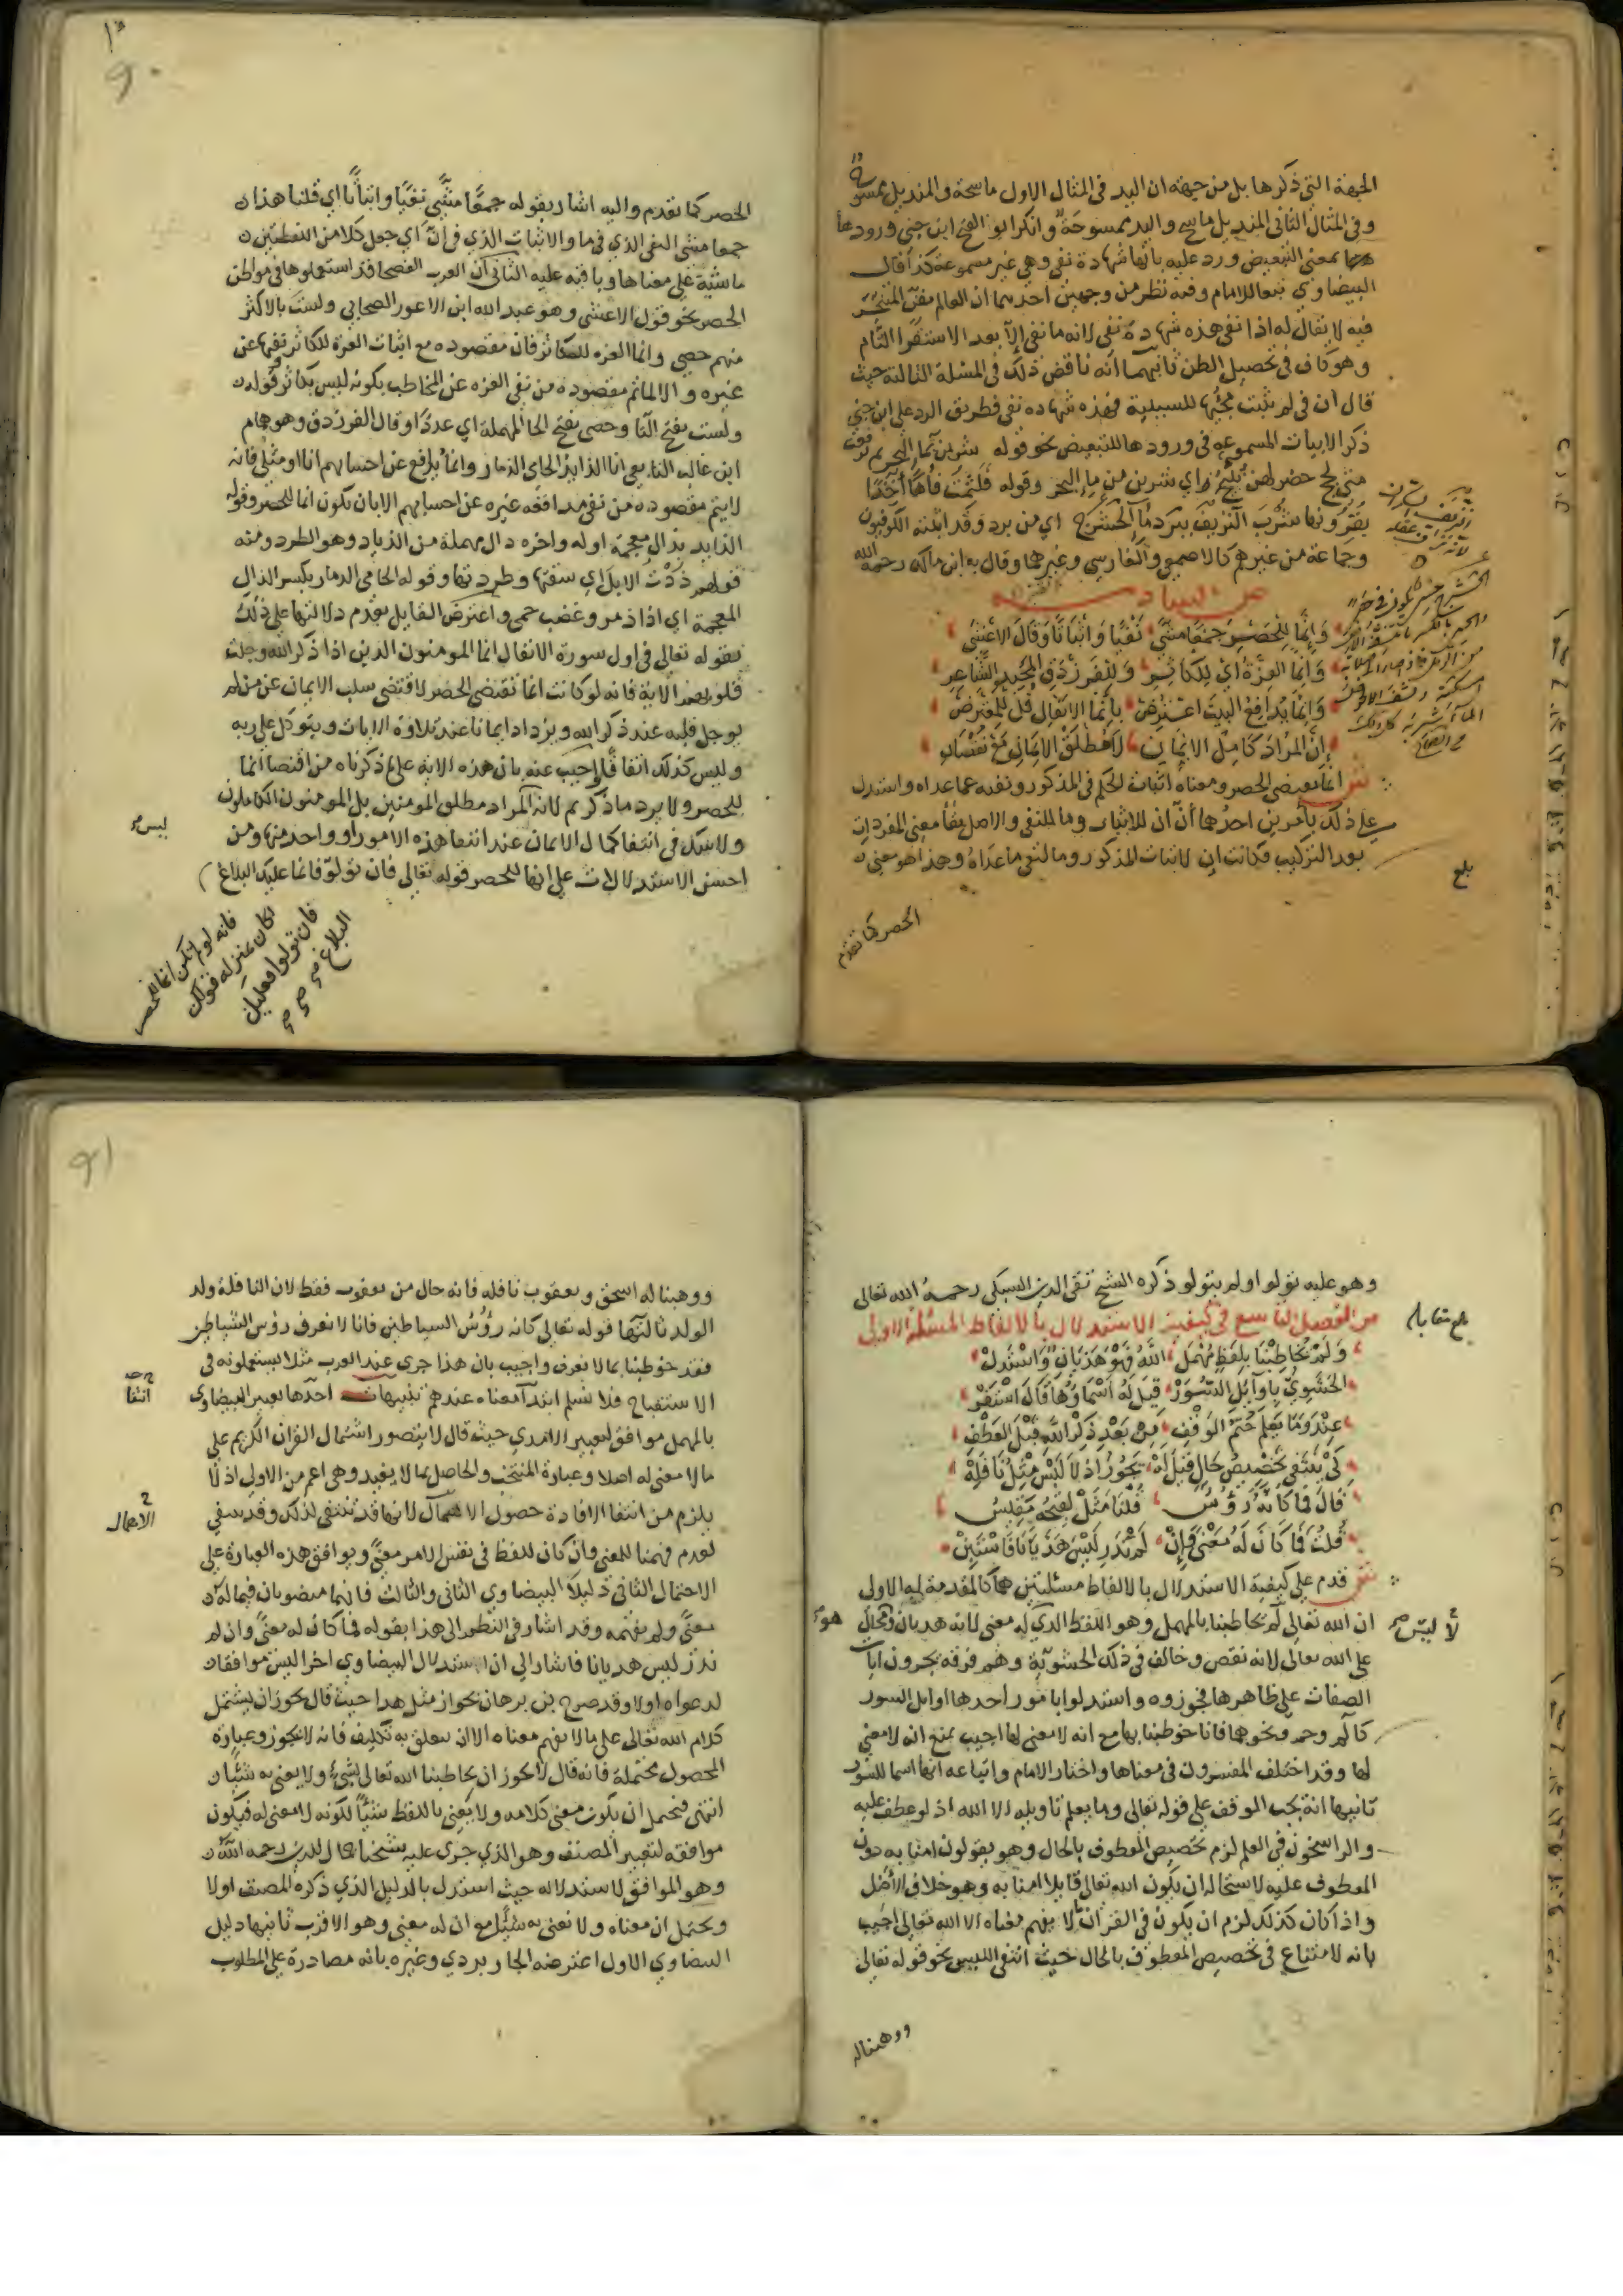 الجهة التي ذكرها بل من جهة ان اليد في المثال الاول ماسحة والمنديل ممسوح
وفي المثال الثاني المنديل ماسح واليد ممسوحة وانكر ابو الفتح ابن جني ورودها
بمعنى التبعيض ورد عليه بانها شهادة نفي وهي غير مسموعة كذا قال
البيضاوي تبعا للامام وفيه نظر من وجهين احدهما ان العالم بفن المتبحر
فيه لا يقال له اذا نفى هذه شهادة نفي لانه ما نفى الا بعد الاستقرا التام
وهو كاف في تحصيل الظن ثانيهما انه ناقض ذلك في المسلة الثالثة حيث
قال ان في لم يثبت مجيها للسببية فهذه شهاده نفي فطريق الرد على ابن جني
ذكر الابيات المسموعه في ورودها للتبعيض نحو قوله شربن بما البحر ثم ترفعت
متى لجج خضر لهن نئيج اي شربن من ما البحر وقوله فلثمت فاها آخذا
بقرونها شرب النزيف ببرد ما الحشرج اي من برد وقد اثبته الكوفيون
وجماعة من غيرهم كالاصمعي والفارسي وغيرهما وقال به ابن مالك رحمه الله
وانما للحصر جمعا مثبتي نفيا واثباتا وقال الاعشى
وانما العزة اي للكاثر وللفرزدق المجيد الشاعر
وانما يدافع البيت اعترض بانما الانفال قل للمعترض
ان المراد كامل الايمان لا مطلق الايمان مع نقصان
ش انما يقتضي الحصر ومعناه اثبات الحكم في المذكور ونفيه عما عداه واستدل
على ذلك بامرين احدهما أن أن للاثبات وما للنفي والاصل بقا معنى المفردات
بعد التركيب فكانت ان لاثبات المذكور وما لنفي ما عداه وهذا هو معنى
بلغ
الحصر كما تقدم
الحصر كما تقدم واليه اشار بقوله جمعا مثبتي نفيا واثباتا اي قلنا هذا
جمعا مثبتي النفي الذي في ما والاثبات الذي في ان اي جعل كلا من اللفظتين
ماشية على معناها وباقيه عليه الثاني أن العرب الفصحا قد استعملوها في مواطن
الحصر نحو قول الاعشى وهو عبد الله ابن الاعور الصحابي ولست بالاكثر
منهم حصى وانما العزه للكاثر فان مقصوده مع اثبات العزة للكاثر نفيها عن
غيره والا لما تم مقصوده من نفي العزه عن المخاطب بكونه ليس بكاثر قوله
ولست بفتح التا وحصى بفتح الحا المهملة اي عددا وقال الفرزدق وهو همام
ابن غالب التابعي انا الذايد الحامي الذمار وانما يدافع عن احسابهم انا او مثلي فانه
لا يتم مقصوده من نفي مدافعه غيره عن احسابهم الا بان تكون انما للحصر وقوله
الذايد بذال معجمة اوله واخره دال مهملة من الذياد وهو الطرد ومنه
قولهم ذدت الابل اي سقتها وطردتها وقوله الحامي الذمار بكسر الذال
المعجمة اي اذا ذمر وغضب حمى واعترض القايل بعدم دلالتها على ذلك
بقوله تعالى في اول سورة الانفال انما المومنون الذين اذا ذكر الله وجلت
قلوبهم الاية فانه لو كانت انما تقتضي الحصر لاقتضى سلب الايمان عن من لم
يوجل قلبه عند ذكر الله ويزداد ايمانا عند تلاوة الايات ويتوكل على ربه
وليس كذلك اتفاقا اجيب عنه بان هذه الايه على ما ذكرناه من اقتضا انما
للحصر ولا يرد ما ذكرتم لانه المراد مطلق المومنين بل المومنون الكاملون
ليس
ولاشك في انتفا كمال الايمان عند انتفا هذه الامور او واحد منها ومن
احسن الاستدلالات على انها للحصر قوله تعالى فان تولوا فانما عليك البلاغ
فانه لو لم تكن انما للحصر
لكان بمنزلة قولك
فان تولوا فعليك
البلاغ
وهو عليه تولوا او لم يتولو ذكره الشيخ تقي الدين السبكي رحمه الله تعالى
ص الفصل التاسع في كيفية الاستدلال بالالفاظ المسئلة الاولى
بلغ مقابله
ولم يخاطبنا بلفظ مهمل الله فهو هذيان واستدل
الحشوي باوايل السور قيل له اسماوها قال استقر
عند وما يعلم حتم الوقف من بعد ذكر الله قبل العطف
كي ينتفي تخصيص حال قيل له يجوز اذ لا لبس مثل نافلة
قال فما كانه رؤس قلنا مثل لقبحه مقيس
قلت فما كان له معنى فإن لم ندر ليس هذيانا فاستبن
ش قدم على كيفية الاستدلال بالالفاظ مسئلتين هما كالمقدمة له الاولى
ان الله تعالى لم يخاطبنا بالمهمل وهو اللفظ الذي له معنى لانه هذيان ومحال
لا ليس
هو
على الله تعالى لانه نقص وخالف في ذلك الحشوية وهم فرقه يجرون ايات
الصفات على ظاهرها فجوزوه واستدلوا بامور احدها اوايل السور
كآلم وحم ونحوها فانا خوطبنا بها مع انه لا معنى لها اجيب بمنع انه لا معنى
لها وقد اختلف المفسرون في معناها واختار الامام واتباعه انها اسما للسور
ثانيها انه يجب الوقف على قوله تعالى وما يعلم تاويله الا الله اذ لو عطف عليه
والراسخون في العلم لزم تخصيص المعطوف بالحال وهو يقولون امنا به دون
المعطوف عليه لاستحاله ان يكون الله تعالى قايلا امنا به وهو خلاف الاصل
واذا كان كذلك لزم ان يكون في القران ما لا يفهم معناه الا الله تعالى اجيب
بانه لا امتناع في تخصيص المعطوف بالحال حيث انتفى اللبس نحو قوله تعالى
ووهبنا له
ووهبنا له اسحق ويعقوب نافله فانه حال من يعقوب فقط لان النافلة ولد
الولد ثالثها قوله تعالى كانه رؤس الشياطين فانا لا نعرف رؤس الشياطين
فقد خوطبنا بما لا نعرف واجيب بان هذا جرى عند العرب مثلا يستعملونه في
الاستقباح فلا نسلم ابتدا معناه عندهم تنبيهات احدها تعبير البيضاوي
انتفا
بالمهمل موافق لتعبير الامدي حيث قال لا يتصور اشتمال القران الكريم على
ما لا معنى له اصلا وعبارة المنتخب والحاصل بما لا يفيد وهي اعم من الاولى اذ لا
يلزم من انتفا الافادة حصول الاهمال لانها قد تنتفي لذلك وقد تنتفي
الاهمال
لعدم فهمنا للمعنى وان كان للفظ في نفس الامر معنى ويوافق هذه العبارة على
الاحتمال الثاني دليلا البيضاوي الثاني والثالث فانهما منصوبان فيما له
معنى ولم نفهمه وقد اشار في النظم الى هذا بقوله فما كان له معنى وان لم
ندر ليس هذيانا فاشار الى ان استدلال البيضاوي اخرا ليس موافقا
لدعواه اولا وقد صرح بن برهان بجواز مثل هذا حيث قال يجوز ان يشتمل
كلام الله تعالى على ما لا يفهم معناه الا ان يتعلق به تكليف فانه لا يجوز وعبارة
المحصول محتملة فانه قال لا يجوز ان يخاطبنا الله تعالى بشيء ولا يعني به شيئا
انتهى فيحتمل ان يكون معنى كلامه ولا يعني باللفظ شيئا لكونه لا معنى له فيكون
موافقه لتعبير المصنف وهو الذي جرى عليه شيخنا جمال الدين رحمه الله
وهو الموافق لاستدلاله حيث استدل بالدليل الذي ذكره المصنف اولا
ويحتمل ان معناه ولا نعني به شيئا مع ان له معنى وهو الاقرب ثانيها دليل
البيضاوي الاول اعترضه الجاربردي وغيره بانه مصادرة على المطلوب